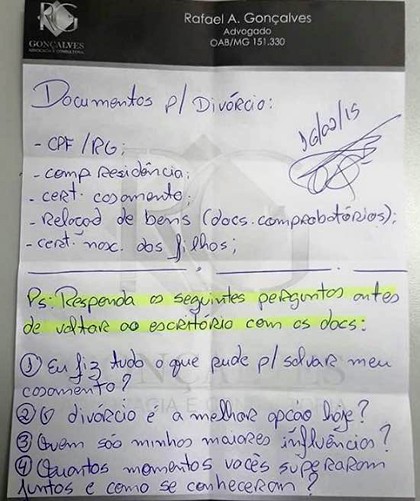 Rafael A. Gonçalves
Advogado
OAB/MG 151.330
GONÇALVES
Documentos p/ Divórcio:
16/02/15
- CPF/RG;
- comp Residência;
- cert. casamento;
- Relação de bens (docs. comprobatórios);
- cert. nasc. dos filhos;
Ps: Responda as seguintes perguntas antes
de voltar ao escritório com os docs:
① Eu fiz tudo o que pude p/ salvar meu
casamento?
② O divórcio é a melhor opção hoje?
③ Quem são minhas maiores influências?
④ Quantos momentos vocês superaram
juntos e como se conheceram?